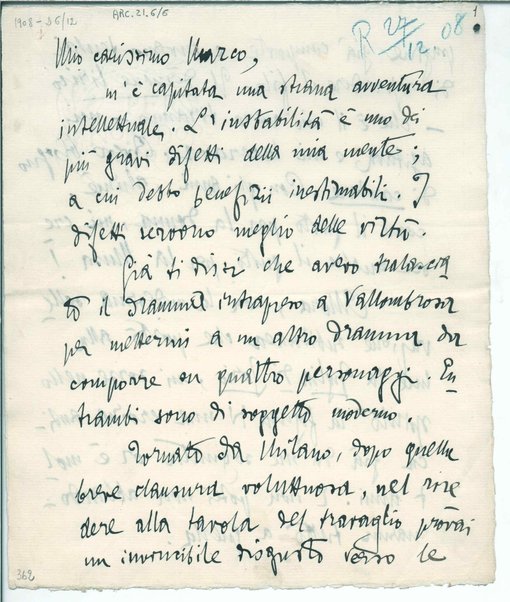 1908 - 26/12
ARC.21.6/6
1
R 27/12 08
Mio carissimo Marco,
m'è capitata una strana avventura
intellettuale. L'instabilità è uno dei
più gravi difetti della mia mente;
a cui debbo benefizii inestimabili. I
difetti servono meglio delle virtù.
Già ti dissi che avevo tralascia
to il dramma intrapreso a Vallombrosa
per mettermi a un altro dramma da
comporre su quattro personaggi. En
trambi sono di soggetto moderno.
Tornato da Milano, dopo quella
breve clausura voluttuosa, nel rive
dere alla tavola del travaglio provai
un invincibile disgusto verso le
362